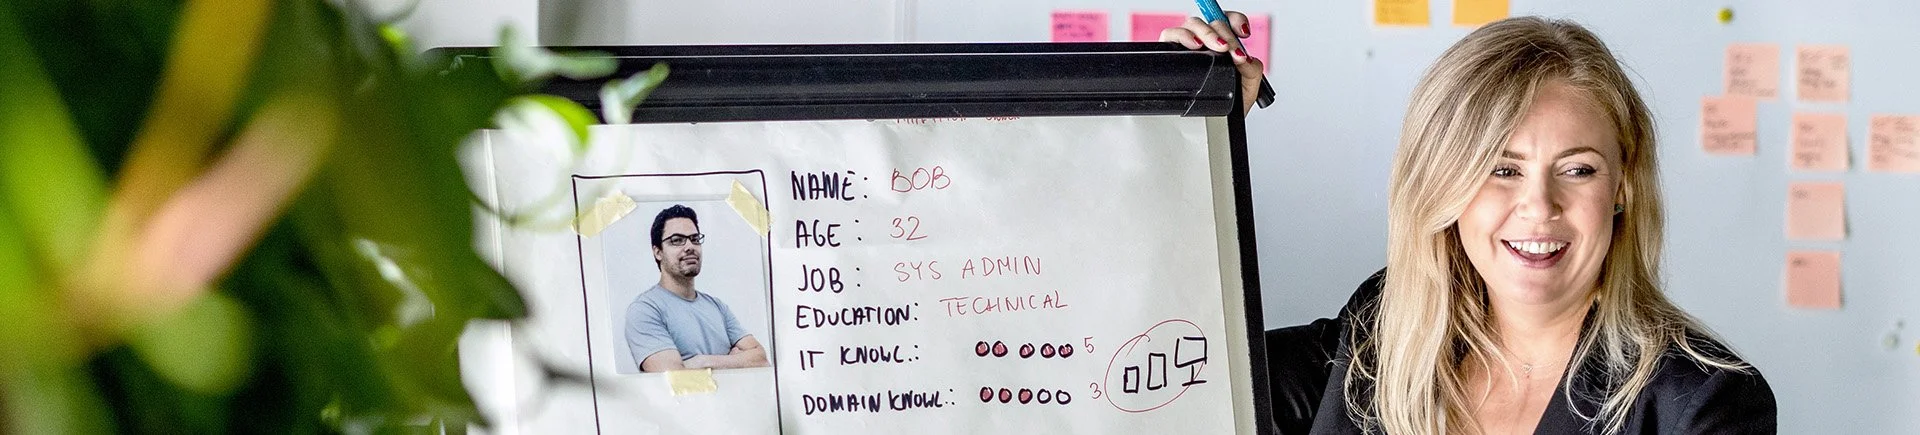 NAME: BOB
AGE: 32
JOB: SYS ADMIN
EDUCATION: TECHNICAL
IT KNOWL.: 5
DOMAIN KNOWL.: 3